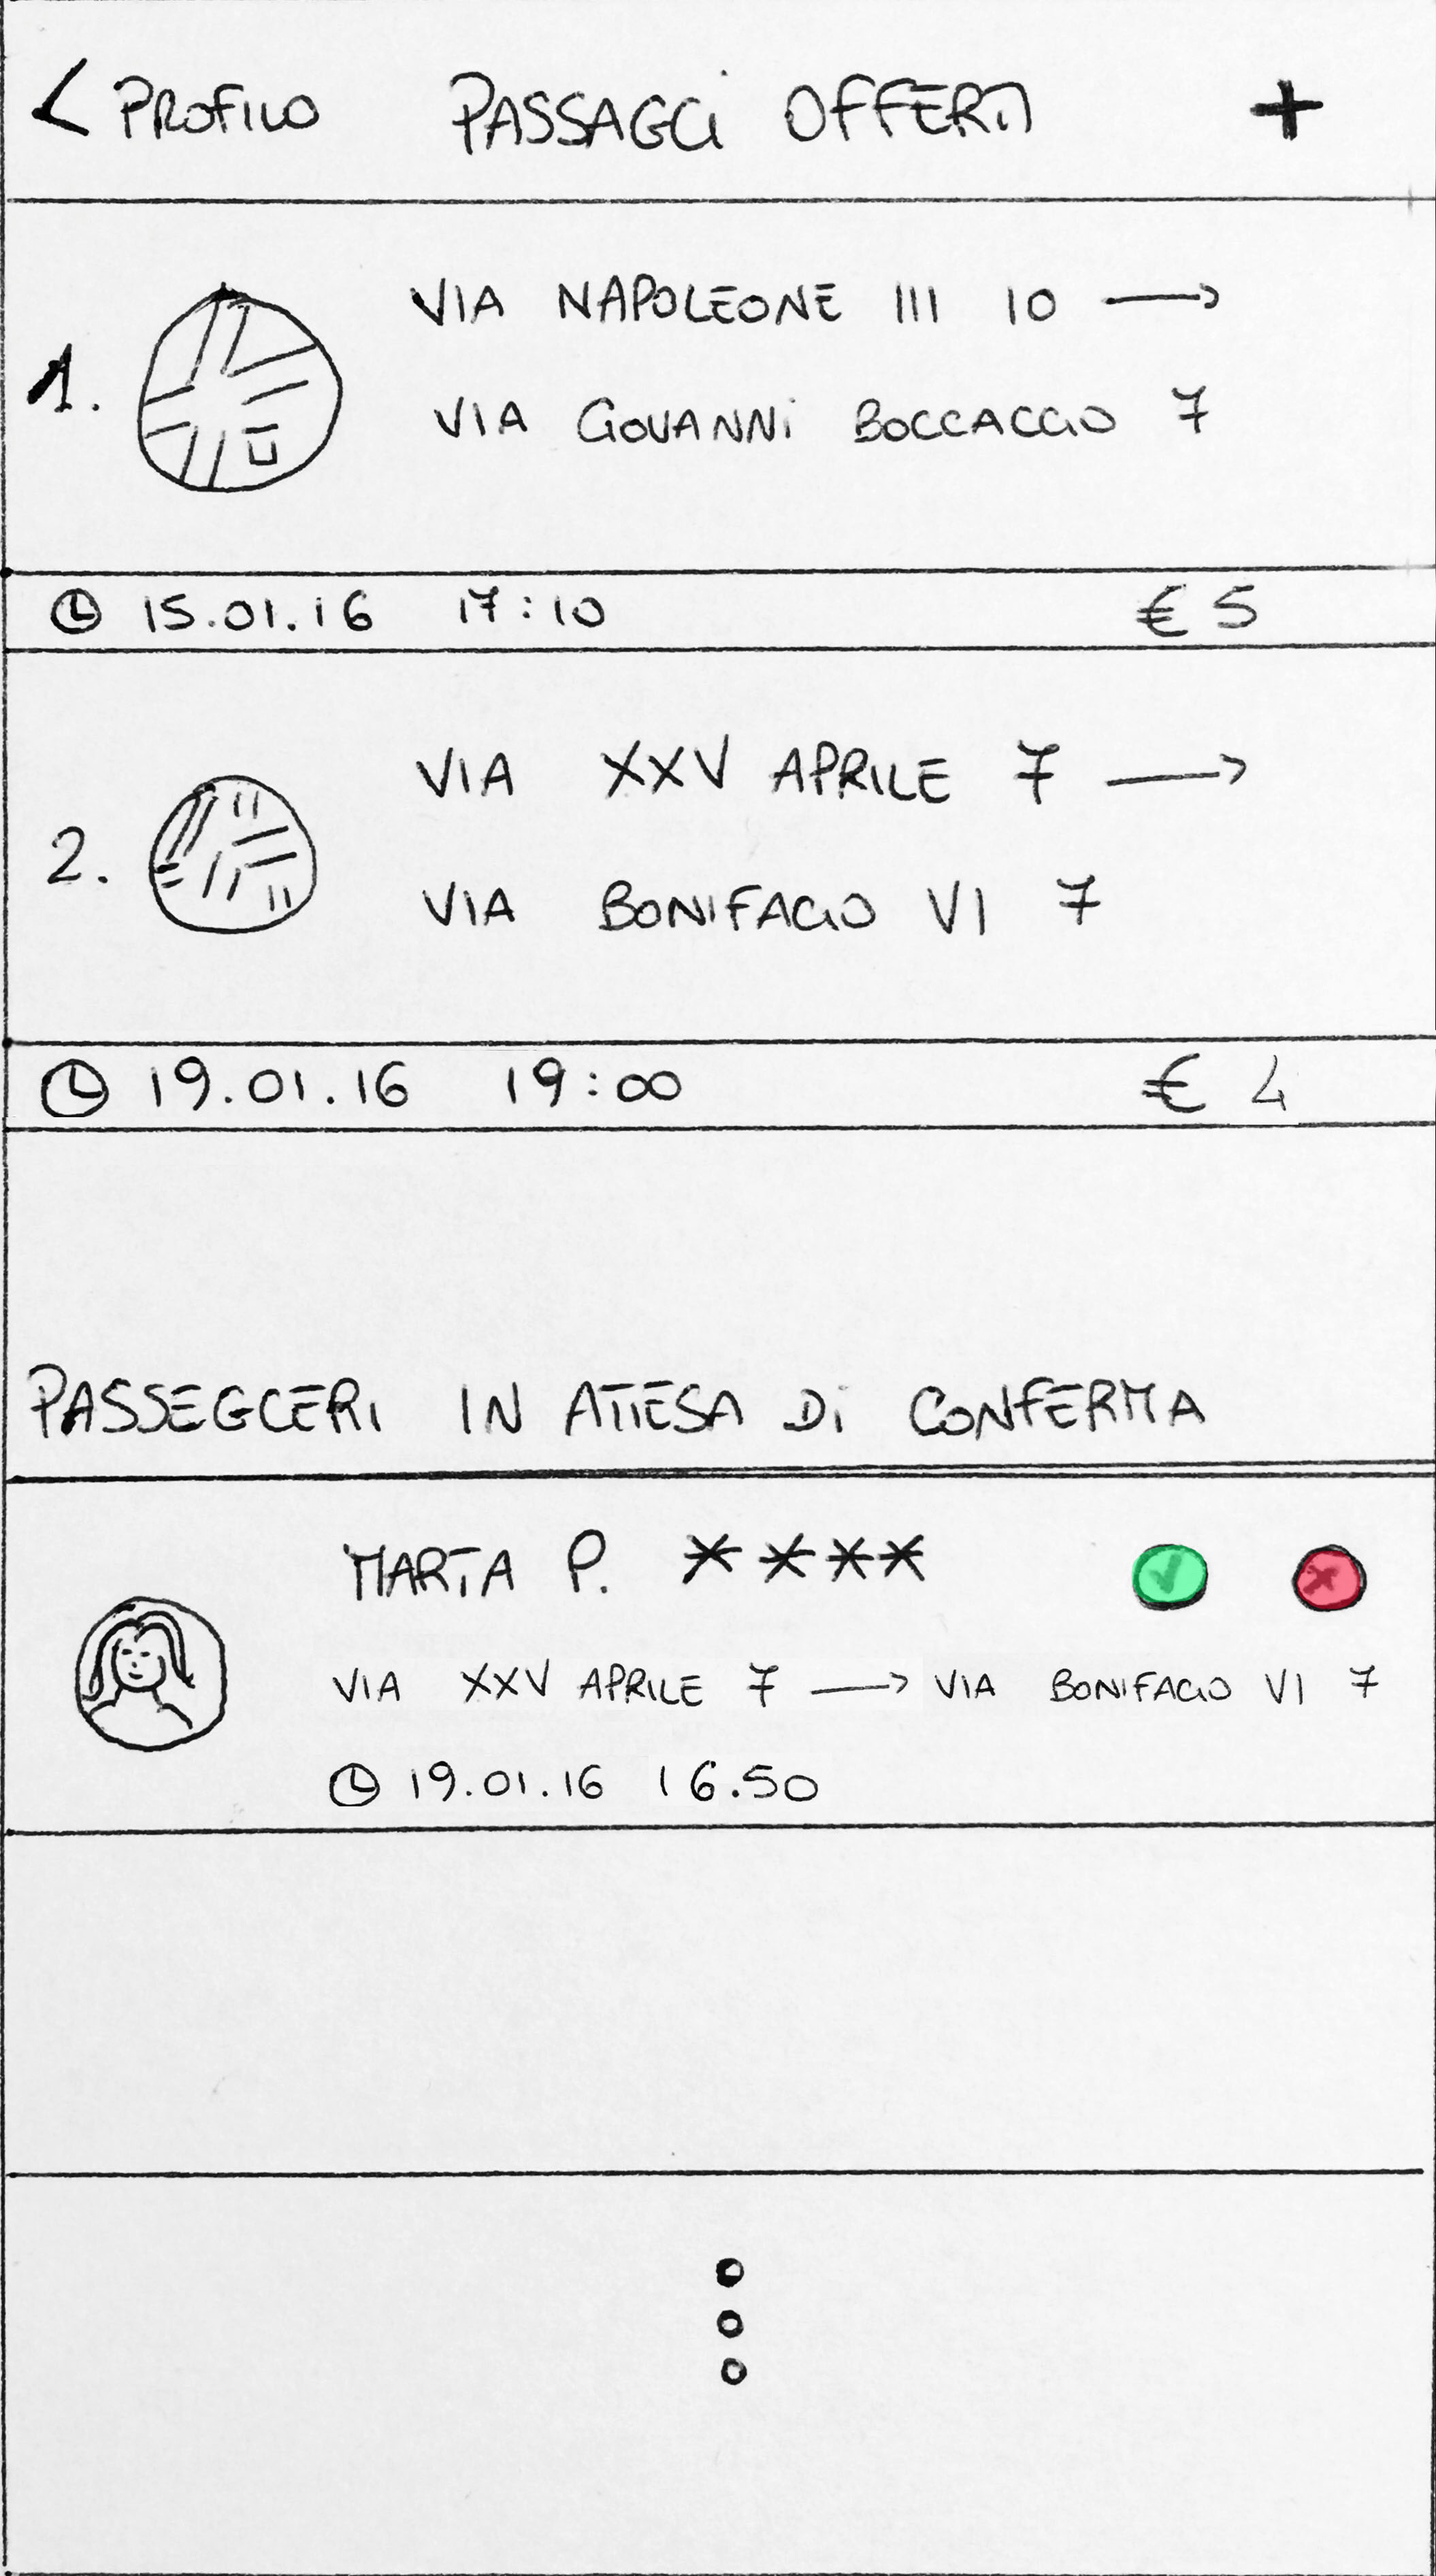 < PROFILO PASSAGGI OFFERTI +
1. VIA NAPOLEONE III 10 →
VIA GIOVANNI BOCCACCIO 7
15.01.16 17:10 € 5
2. VIA XXV APRILE 7 →
VIA BONIFACIO VI 7
19.01.16 19:00 € 4
PASSEGGERI IN ATTESA DI CONFERMA
MARTA P. ****
VIA XXV APRILE 7 → VIA BONIFACIO VI 7
19.01.16 16.50